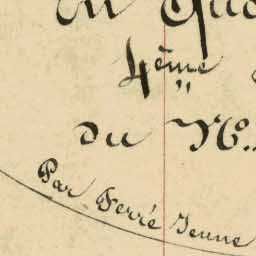 ou Qu
4ème
du No.
Par Ferré Jeune